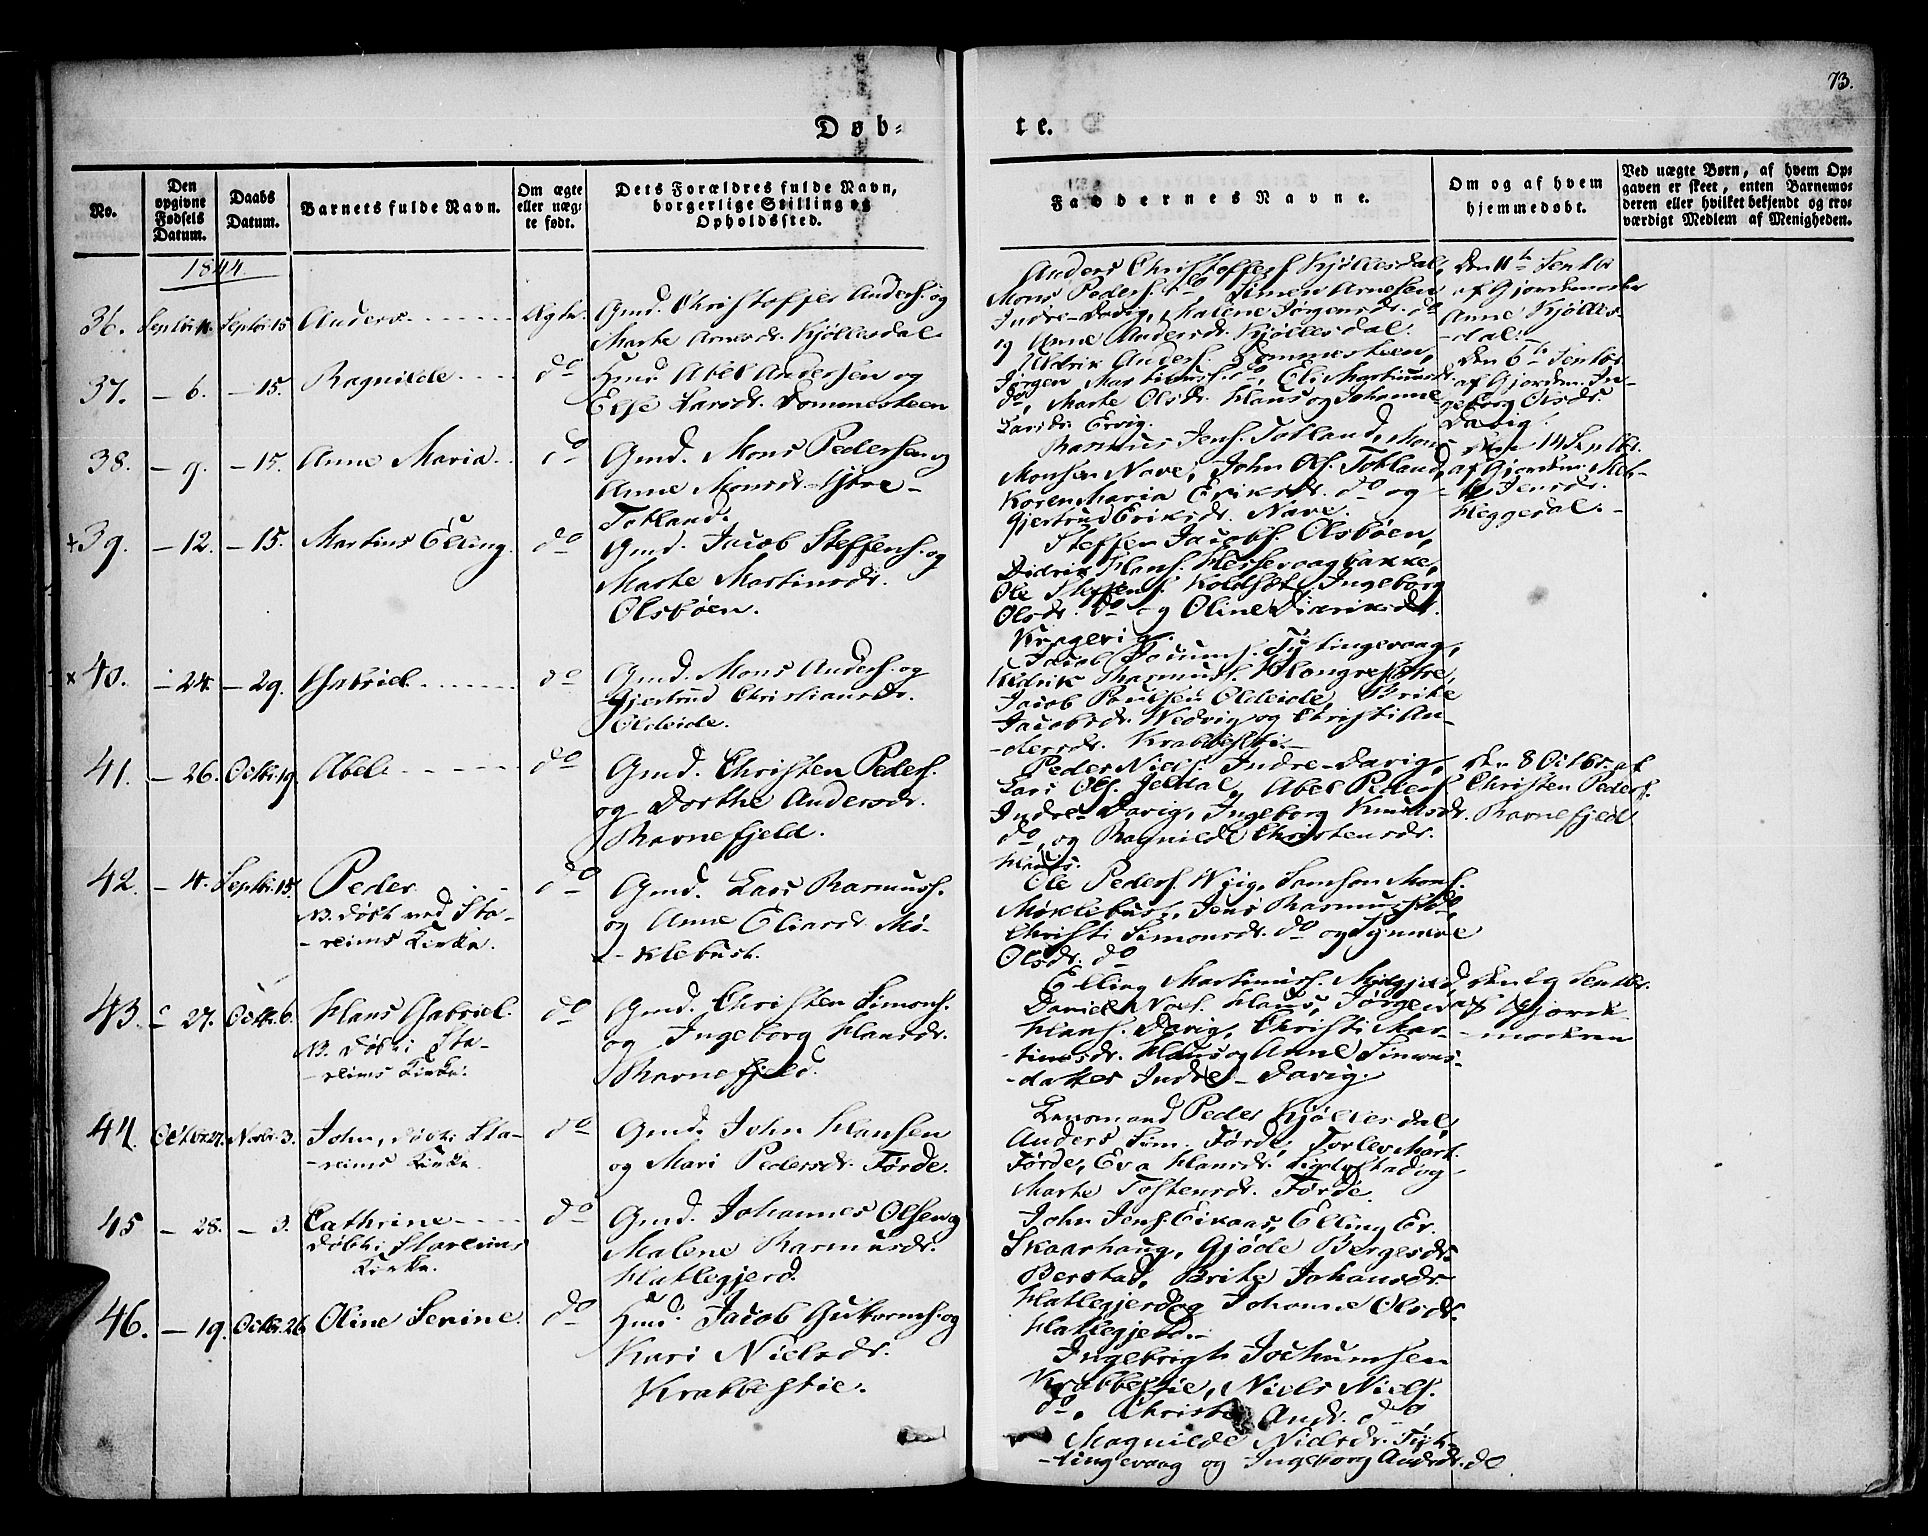 73.
Døb-
te.
No.
Den opgivne Fødsels Datum.
Daabs Datum.
Barnets fulde Navn.
Om ægte eller uægte født.
Dets Forældres fulde Navn, borgerlige Stilling og Opholdssted.
Faddernes Navne.
Om og af hvem hjemmedøbt.
Ved uægte Børn, af hvem Opgaven er skeet, enten Barnemoderen eller hvilket bekjendt og troværdigt Medlem af Menigheden.
1844.
36. Septbr. Septbr. 15 Anders Ægte. Gmd. Christoffer Anders. og
Marte Arnesdr. Kjøllesdal
Anders Christoffers. Kjøllesdal,
Mons Peders. do Simon Arnesen
Indre-Davig, Malene Jørgensdr. do
og Anne Andersdr. Kjøllesdal.
Den 11te Septbr
af Gjordemoder
Anne Kjølles-
-dal.
37. - 6. - 15. Ragnilde do Huusmd. Abel Andersen og
Else Larsdr. Dommesteen
Uldrik Anders. Dommesteen,
Jørgen Martinus. do, Eli Martinusdr.
do, Marte Olsdr. Haus og Johanne
Larsdr. Ervig.
Den 6te Septbr
af Gjordm. In-
geborg Olsdr.
Davig.
38. - 9. - 15. Anne Maria do Gmd. Mons Pedersen og
Anne Monsdr. Ytre-
Totland.
Rasmus Jens. Totland, Mons
Monsen Nave, John Ols. Totland,
Karen Maria Eriksdr. do og
Gjertrud Eriksdr. Nave.
den 14 Septbr.
af Gjordm.
Jensdr.
Heggedal.
+39. - 12. - 15. Martinus Elling. do Gmd. Jacob Steffens. og
Marte Martinusdr.
Olsbøen.
Steffen Jacobs. Olsbøen,
Didrik Hans. Hessevaagbakke,
Ole Steffens. Koldset, Ingeborg
Olsdr. do og Oline Didriksdr.
x 40. - 24. - 29. Gabriel do Gmd. Mons Anders. og
Gjertrud Christiansdr.
Oldeide.
Jacob Tytingevaag,
Uldrik Rasmus.
Jacob Paulsen Oldeide, Brite
Jacobsdr. Wedvig og Christi An-
-dersdr. Krabbesti.
41. - 26. Octbr. 19 Abel do Gmd. Christen Peders.
og Dorthe Andersdr.
Ravnefjeld.
Peder Niels. Indre-Davig,
Lars Ols. Jeldal, Abel Peders.
Indre-Davig, Ingeborg Knudsdr.
do, og Ragnilde Christensdr.
Haus.
den 8 Octbr. af
Christen Peders.
Ravnefjeld
42. - 4. Septbr. 15. Peder
NB. døbt ved Sta-
-reims Kirke.
do Gmd. Lars Rasmuss.
og Anne Eliasdr. Mø-
-klebust.
Ole Peders. Wiig, Samson Mons.
Møklebust, Jens Rasmuss. do,
Christi Simonsdr. do og Synneve
Olsdr. do
43. - 27. Octbr. 6. Hans Gabriel.
NB. døbt i Sta-
-reims Kirke.
do Gmd. Christen Simons.
og Ingeborg Hansdr.
Ravnefjeld.
Elling Martinuss. Midgjerd,
Daniel Niels. Haus, Jørgen
Hans. Davig, Christi Mar-
-tinusdr. Haus og Anne Simons-
-datter Indre-Davig.
den 29 Septbr.
af Gjorde-
-moderen
44. Octbr. 27. Novbr. 3. John, døbt i Sta-
-reims Kirke.
do Gmd. John Hansen
og Mari Pedersdr. Førde.
Lensmand Peder Kjøllesdal,
Anders Sim. Førde, Torlev Mart.
Førde, Eva Hansdr. og
Marte Tostensdr. Førde.
45 - 28. - 3. Cathrine
Døbt i Stareims
Kirke.
do Gmd. Johannes Olsen og
Malene Rasmusdr.
Hatlegjerd.
John Jens. Eikaas, Elling Er.
Skaarhaug, Gjøde Bergesdr.
Berstad, Brite Johansdr.
Hatlegjerd og Johanne Olsdr.
Hatlegjerd.
46. - 19. Octbr. 26 Oline Serine. do Huusmd. Jacob Guttorms. og
Kari Nielsdr.
Krabbestie.
Ingebrigt Jochumsen
Krabbestie, Niels Niels.
do, Christi Andr. do
Magnilde Nielsdr. Tyt-
-tingevaag og Ingeborg Andrsdr. do